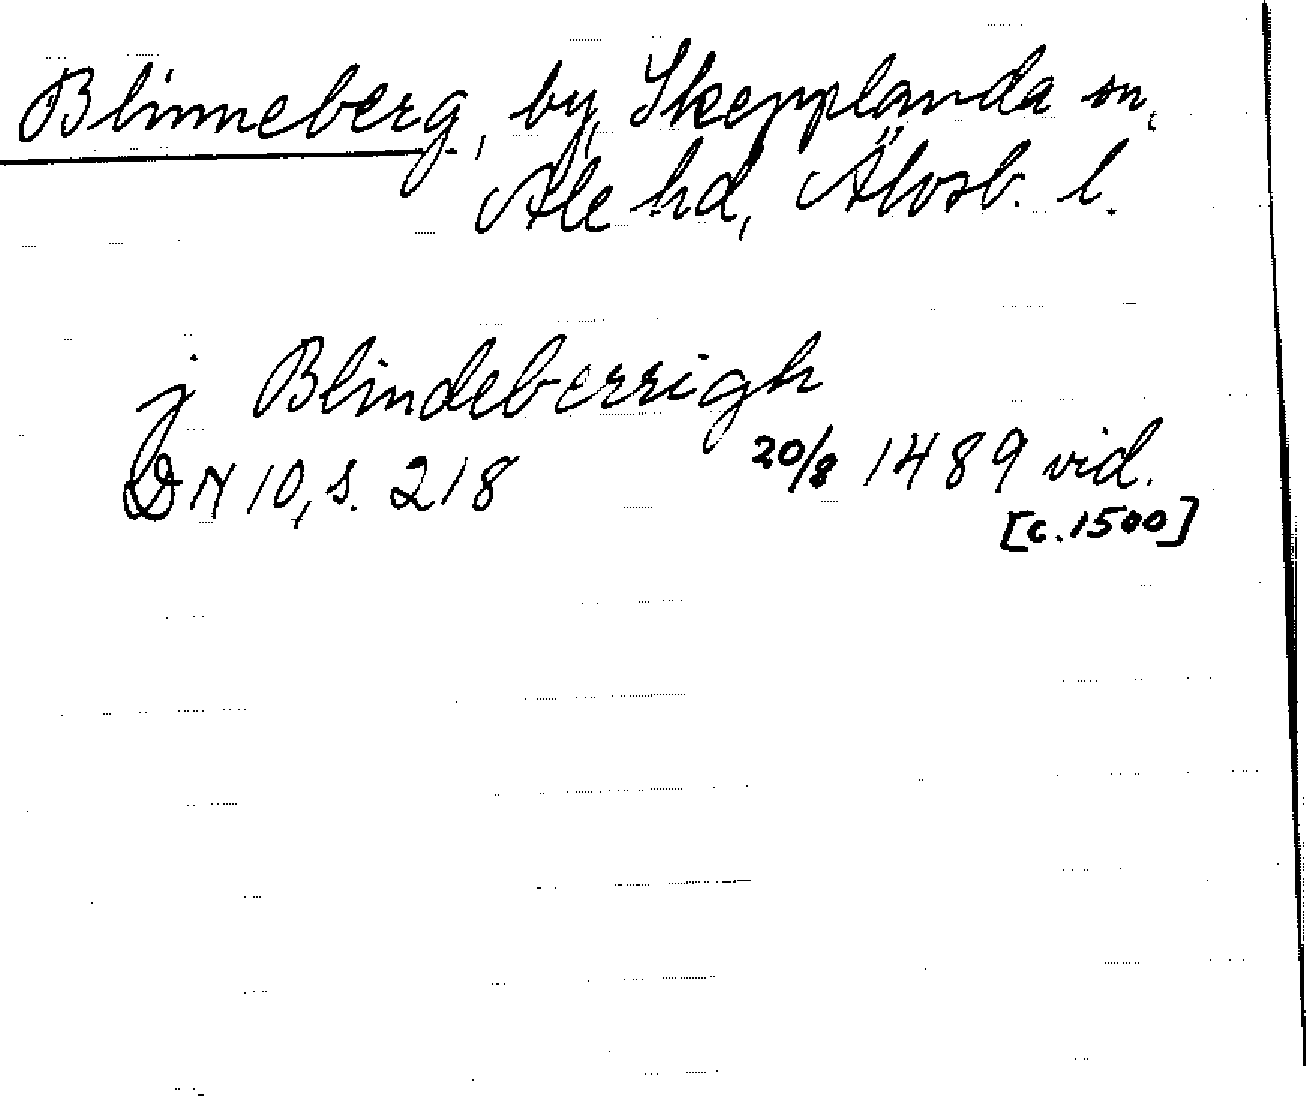 Blinneberg, by, Skepplanda sn,
Ale hd, Älvsb. l.
j Blindeberrigh
DN 10, s. 218 20/8 1489 vid.
[c. 1500]